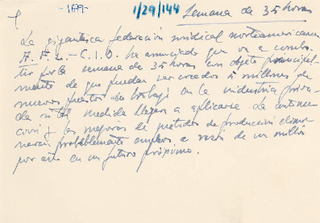 -1679-
1/29/144
Semana de 35 horas
La gigantesca federación sindical norteamericana
A.F.L.-C.I.O. ha anunciado que va a comba-
tir por la semana de 35 horas con objeto principal-
mente de que puedan ser creados 5 millones de
nuevos puestos de trabajo en la industria priva-
da
si tal medida llegara a aplicarse. La automa-
ción y las mejoras de métodos de producción elimi-
narán probablemente empleos a razón de un millón
por año en un futuro próximo.